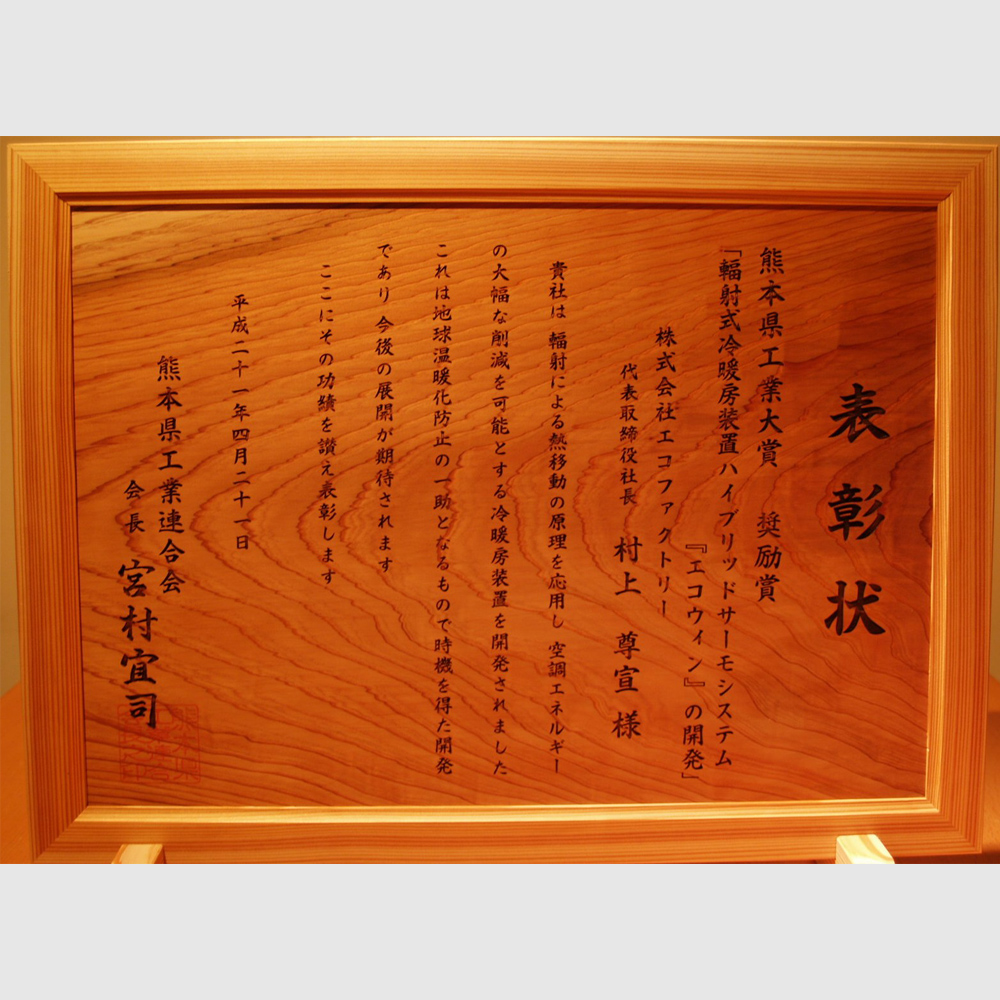 表彰状
熊本県工業大賞 奨励賞
「輻射式冷暖房装置ハイブリッドサーモシステム
『エコウィン』の開発」
株式会社エコファクトリー
代表取締役社長 村上 尊宣 様
貴社は 輻射による熱移動の原理を応用し 空調エネルギー
の大幅な削減を可能とする冷暖房装置を開発されました
これは地球温暖化防止の一助となるもので時機を得た開発
であり 今後の展開が期待されます
ここにその功績を讃え表彰します
平成二十一年四月二十一日
熊本県工業連合会
会長 宮村宜司